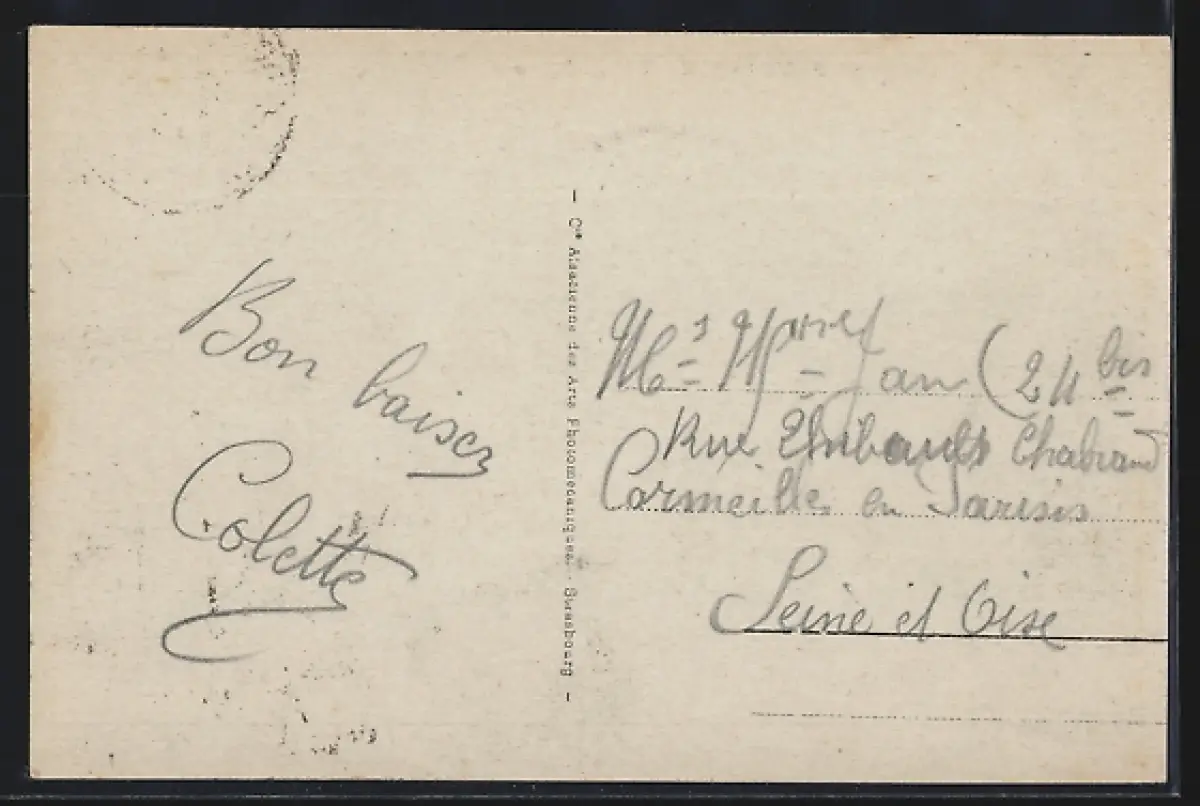 Bon baiser
Colette
- Cie Alsacienne des Arts Photomécaniques - Strasbourg -
Jan (24 bis
Rue Thibault Chabrand
Cormeilles en Parisis
Seine et Oise